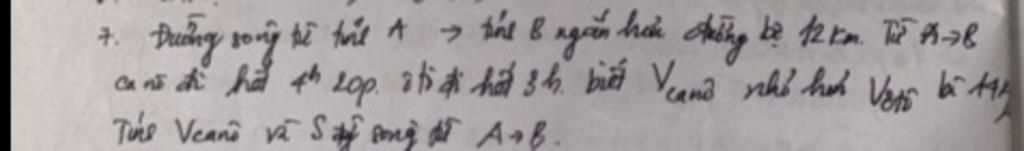 7. Đường sông từ tỉnh A → tỉnh B ngắn hơn đường bộ 12 km. Từ A→B
ca nô đi hết 4h 20p. ô tô đi hết 3h. biết Vcanô nhỏ hơn Vôtô
Tính Vcanô và S sông từ A→B.